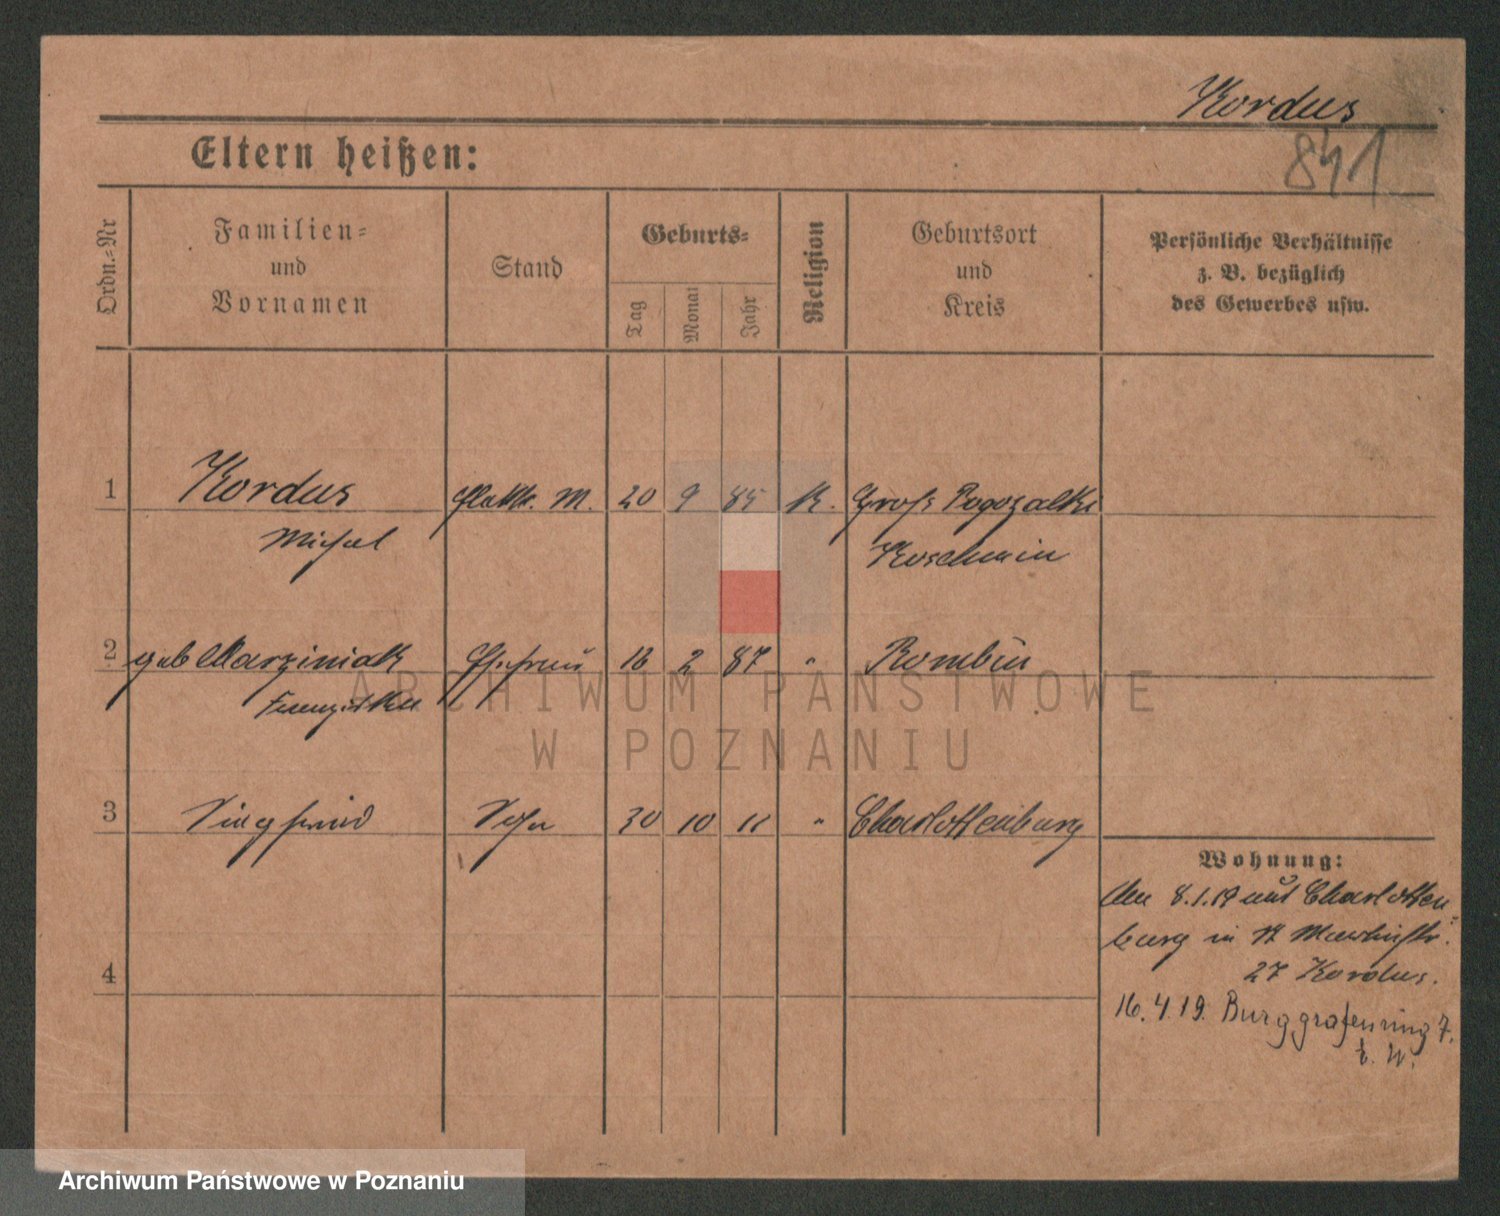 Kordus
841
Eltern heißen:
Ordn.-Nr
Familien-
und
Vornamen
Stand
Geburts-
Tag
Monat
Jahr
Religion
Geburtsort
und
Kreis
Persönliche Verhältnisse
z. B. bezüglich
des Gewerbes usw.
1 Kordus M. 20 9 85 K. Groß Pogozalki
Michal Koschmin
2 geb Marziniak Ehefrau 16 2 87 " Rombin
Franziska
3 Siegfried Sohn 30 10 11 " Charlottenburg
4
Wohnung:
8.1.19 aus Charlotten
burg in
27 Kordus.
16.4.19. Burggrafenring 7.
ARCHIWUM PAŃSTWOWE
W POZNANIU
Archiwum Państwowe w Poznaniu